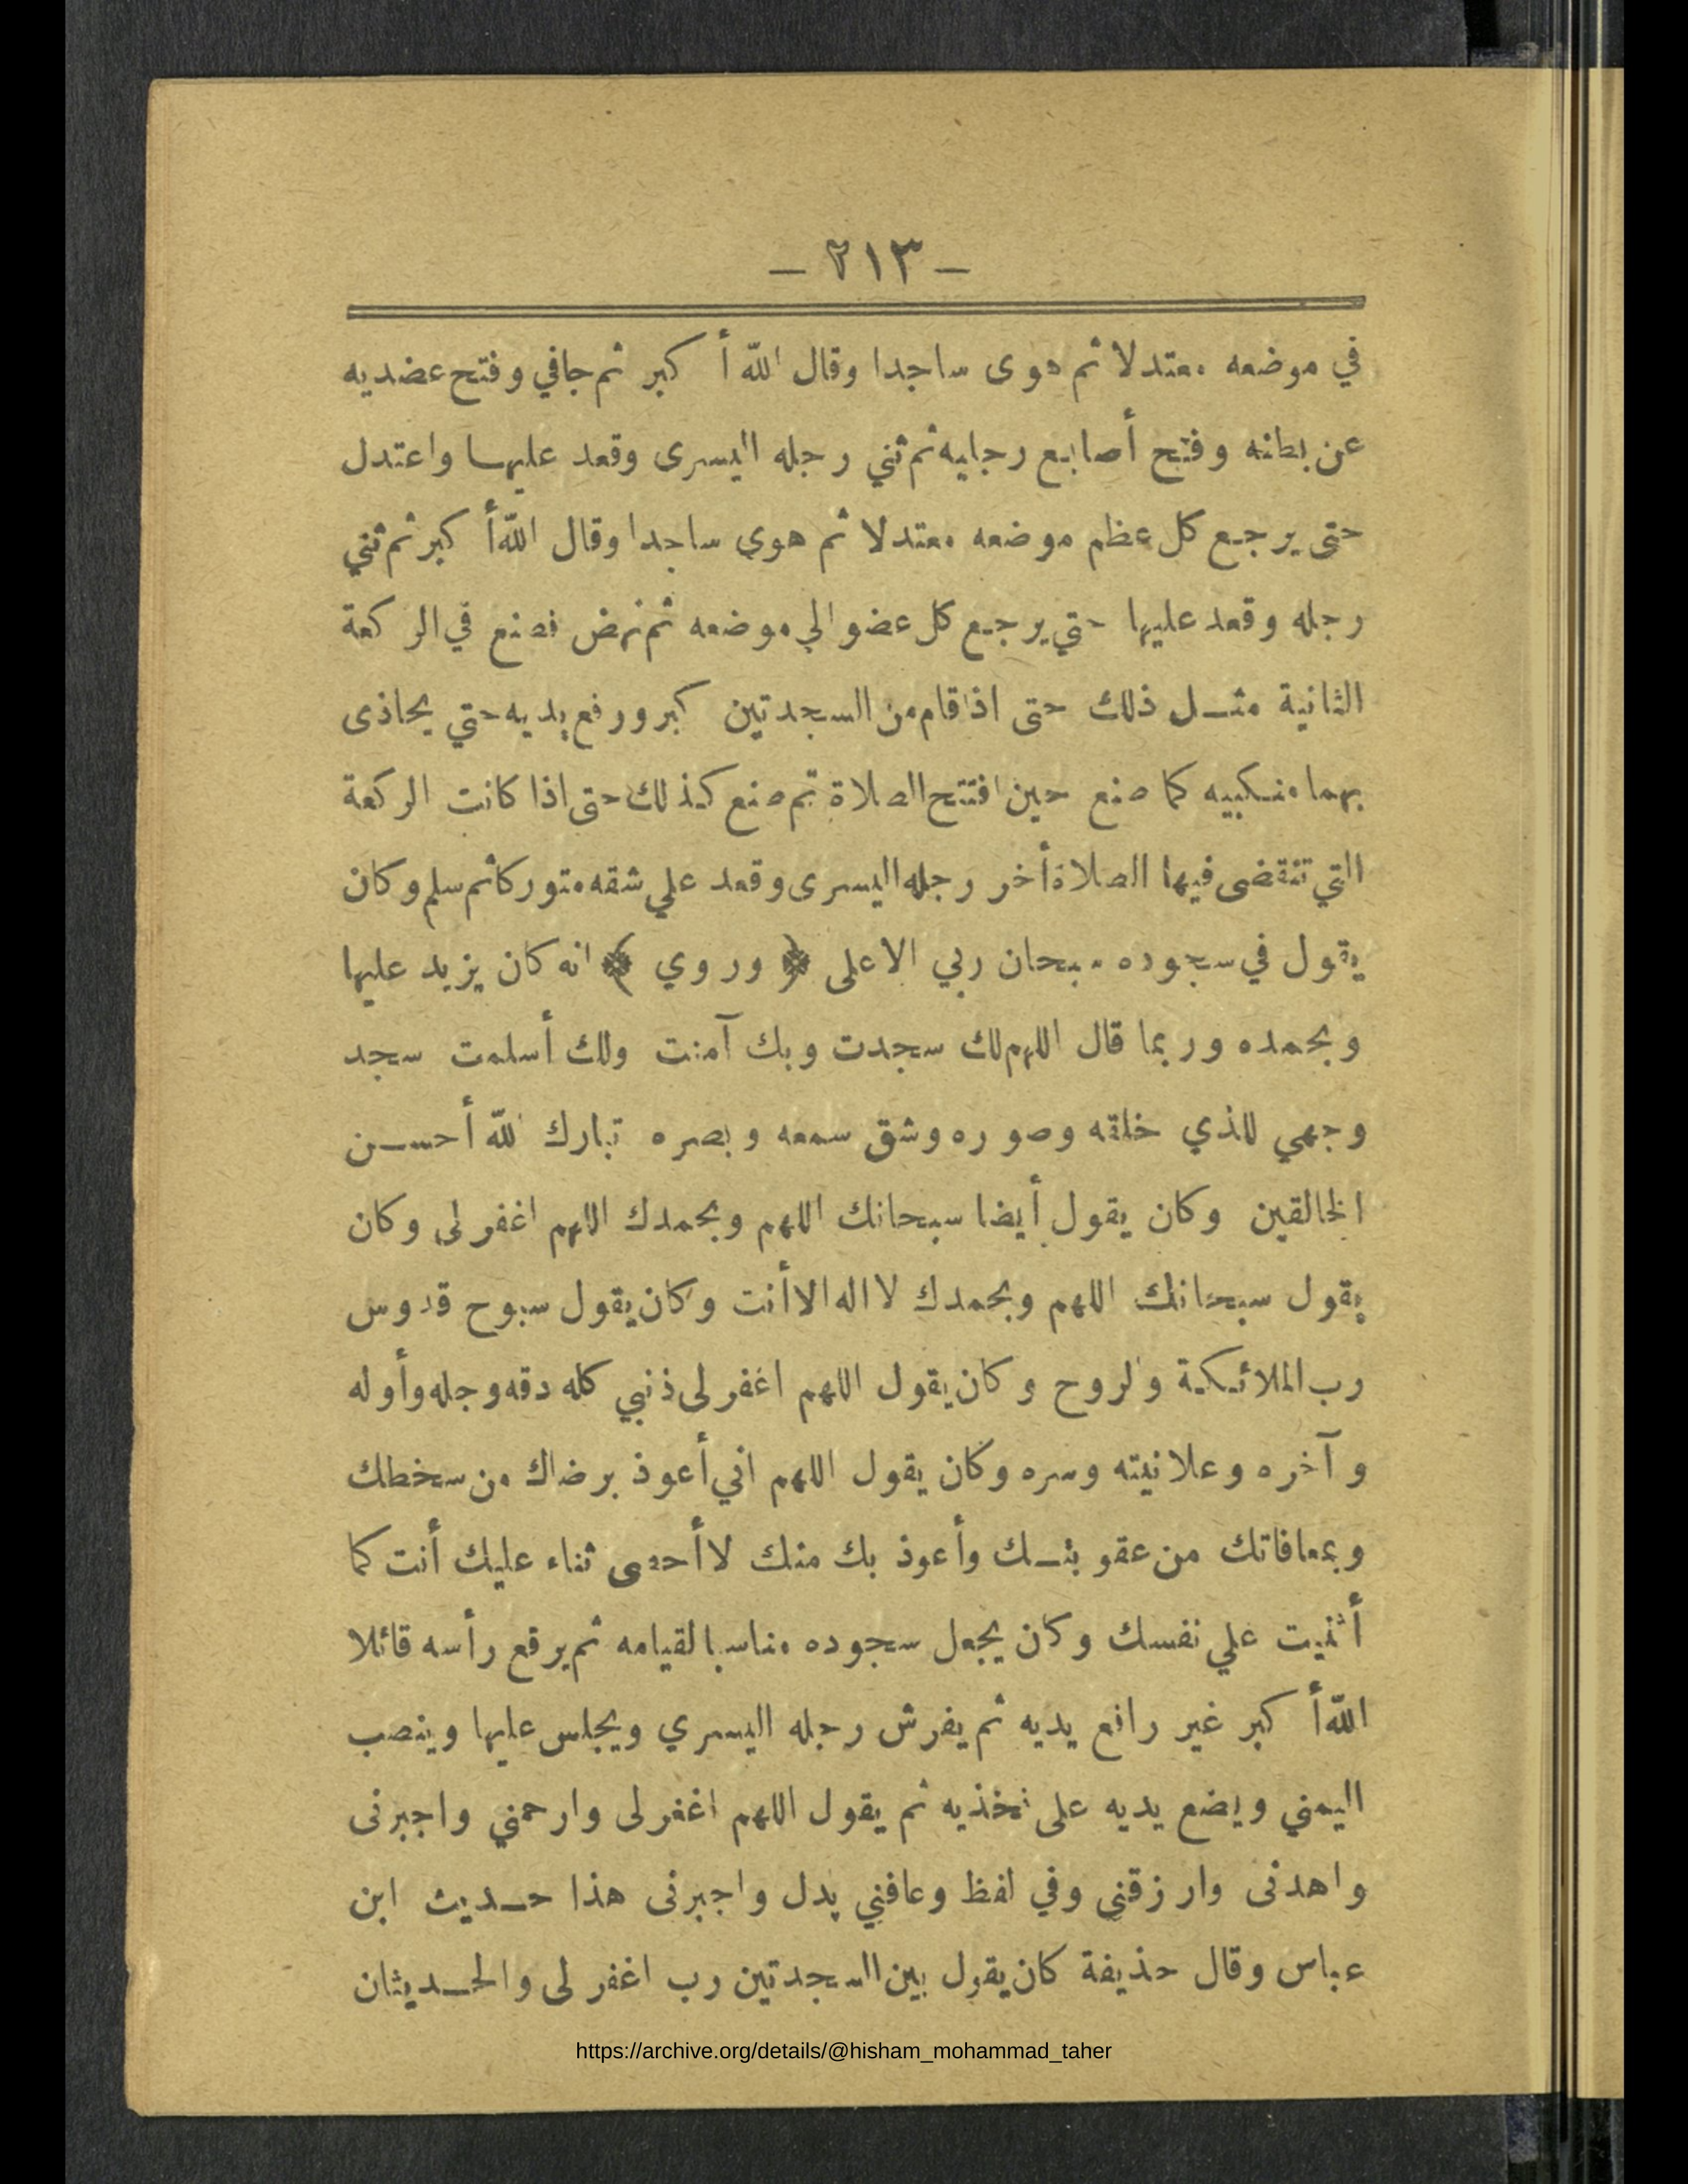 — ٢١٣ —
في موضعه معتدلا ثم هوى ساجدا وقال الله أكبر ثم جافي وفتح عضديه
عن بطنه وفتح أصابع رجليه ثم ثني رجله اليسرى وقعد عليها واعتدل
حتى يرجع كل عظم موضعه معتدلا ثم هوي ساجدا وقال الله أكبر ثم ثني
رجله وقعد عليها حتي يرجع كل عضو الي موضعه ثم نهض فصنع في الركعة
الثانية مثل ذلك حتى اذا قام من السجدتين كبر ورفع يديه حتي يحاذى
بهما منكبيه كما صنع حين افتتح الصلاة ثم صنع كذلك حتى اذا كانت الركعة
التي تنقضى فيها الصلاة أخر رجله اليسرى وقعد علي شقه متوركا ثم سلم وكان
يقول في سجوده سبحان ربي الاعلى ﴿ وروي ﴾ انه كان يزيد عليها
وبحمده وربما قال اللهم لك سجدت وبك آمنت ولك أسلمت سجد
وجهي للذي خلقه وصوره وشق سمعه وبصره تبارك الله أحسن
الخالقين وكان يقول أيضا سبحانك اللهم وبحمدك اللهم اغفر لى وكان
يقول سبحانك اللهم وبحمدك لا اله الا أنت وكان يقول سبوح قدوس
رب الملائكة والروح وكان يقول اللهم اغفر لى ذنبي كله دقه وجله وأوله
وآخره وعلانيته وسره وكان يقول اللهم اني أعوذ برضاك من سخطك
وبمعافاتك من عقوبتك وأعوذ بك منك لا أحصى ثناء عليك أنت كما
أثنيت علي نفسك وكان يجعل سجوده مناسبا لقيامه ثم يرفع رأسه قائلا
الله أكبر غير رافع يديه ثم يفرش رجله اليسري ويجلس عليها وينصب
اليمني ويضع يديه على فخذيه ثم يقول اللهم اغفر لى وارحمني واجبرنى
واهدنى وارزقني وفي لفظ وعافني بدل واجبرنى هذا حديث ابن
عباس وقال حذيفة كان يقول بين السجدتين رب اغفر لى والحديثان
https://archive.org/details/@hisham_mohammad_taher